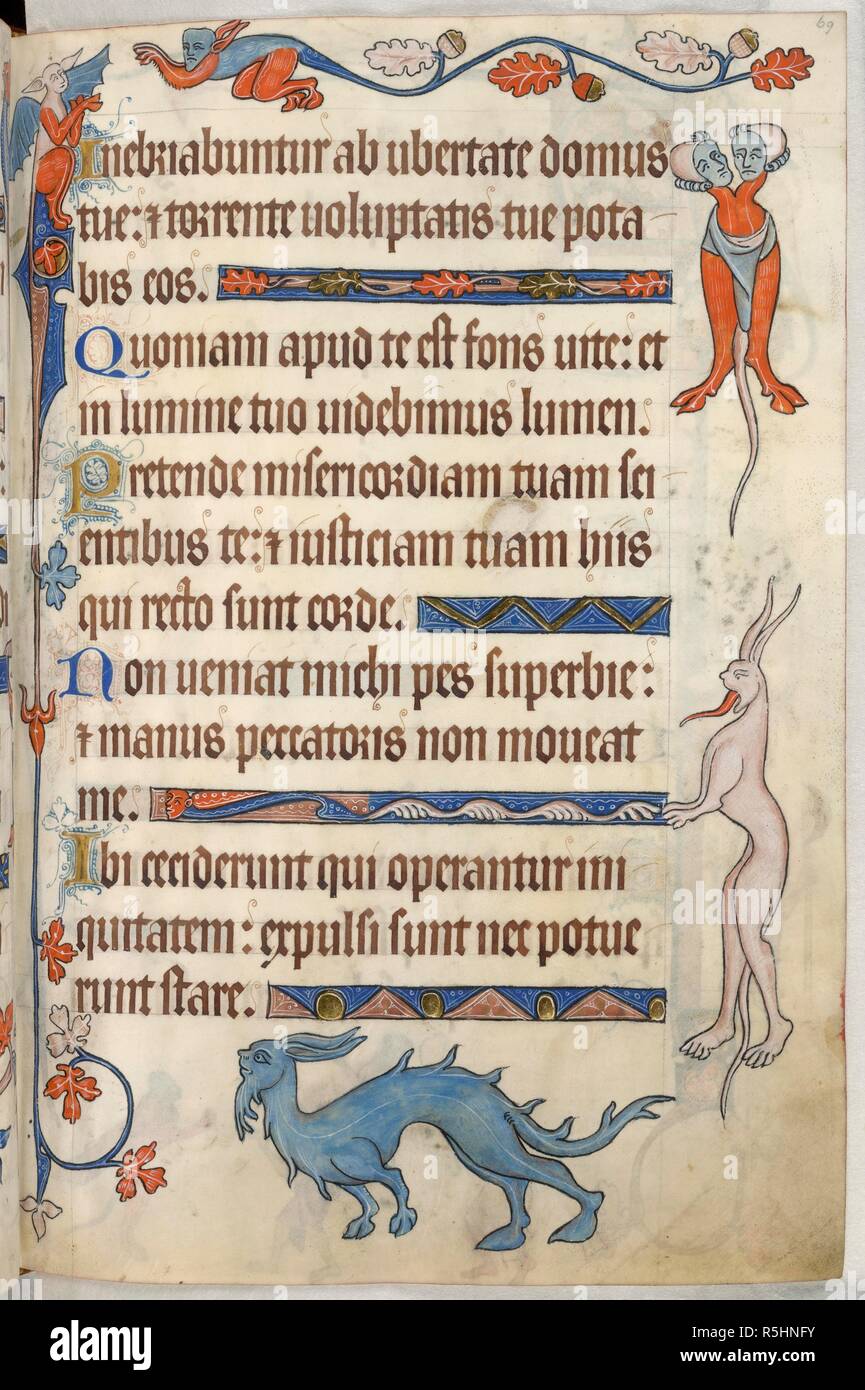 69
Inebriabuntur ab ubertate domus
tue: ⁊ torrente uoluptatis tue pota
bis eos.
Quoniam apud te est fons uite: et
in lumine tuo uidebimus lumen.
Pretende misericordiam tuam sci
entibus te: ⁊ iusticiam tuam hiis
qui recto sunt corde.
Non ueniat michi pes superbie:
⁊ manus peccatoris non moueat
me.
Ibi ceciderunt qui operantur ini
quitatem: expulsi sunt nec potue
runt stare.
alamy
Image ID: R5HNFY
www.alamy.com